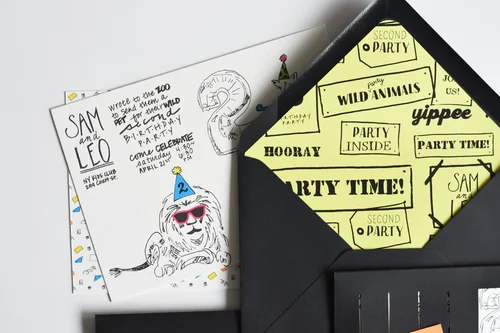 SAM
and
LEO
NY KIDS CLUB
wrote to the ZOO
to send them a
PET for their WILD
second
BIRTHDAY
PARTY
come CELEBRATE
saturday
APRIL 21st
4:30
6:30
PM
2
SECOND
PARTY
party
WILD ANIMALS
JOIN
US!
yippee
PARTY
HOORAY
PARTY
INSIDE
PARTY TIME!
ARTY TIME!
SAM
and
SECOND
PARTY